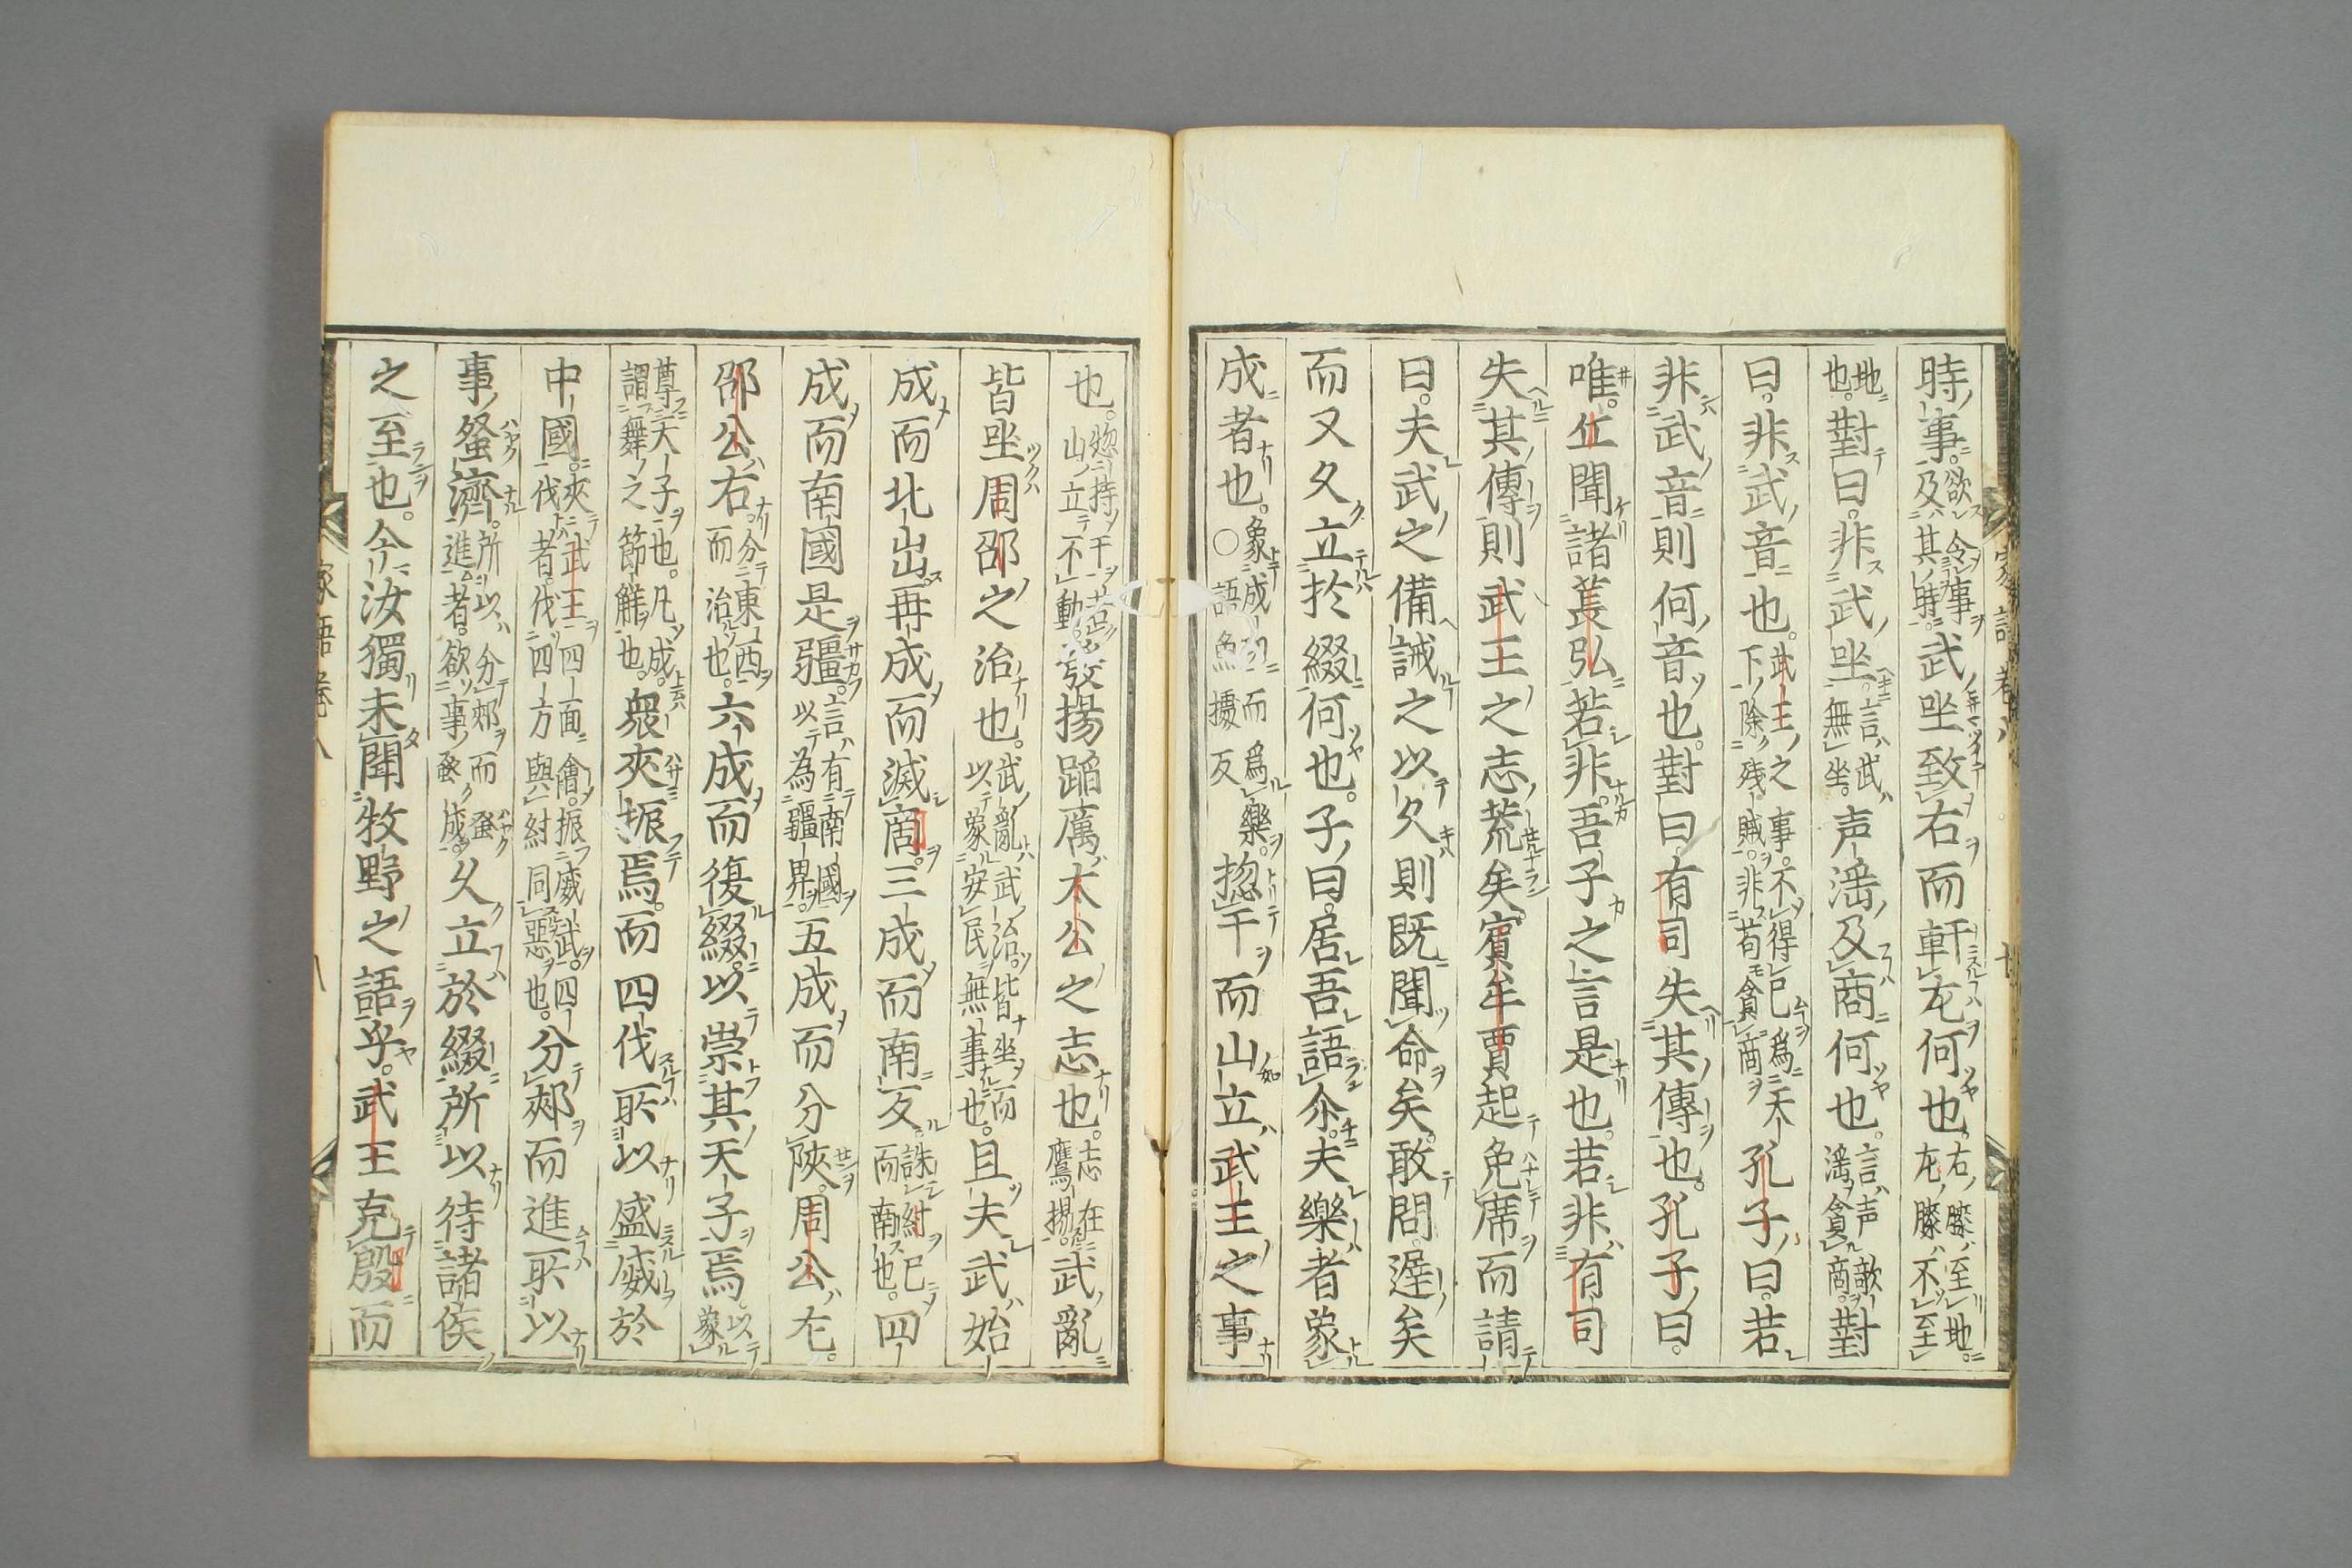 時事。欲令事及其時。武坐致右而軒左何也。右膝至地。左膝不至
地也。對曰。非武坐。言武無坐。声滛及商何也。言声歆滛貪商。對
曰。非武音也。武王之事。不得已為天下除残賊。非苟貪商。孔子曰。若
非武音則何音也。對曰。有司失其傳也。孔子曰。
唯。丘聞諸萇弘。若非吾子之言是也。若非有司
失其傳則武王之志荒矣。賓牟賈起免席而請
曰。夫武之備誡之以久則既聞命矣。敢問遲矣
而又久立於綴何也。子曰。居吾語尒。夫樂者象
成者也。象成功而為樂。○語魚據反。揔干而山立武王之事
也。揔持干若山立不動。發揚蹈厲太公之志也。志在鷹揚。武亂
皆坐周邵之治也。武亂武治。皆坐而以象安民無事也。且夫武始
成而北出。再成而滅商。三成而南反。誅紂已而南也。四
成而南國是疆。言有南國以為疆界。五成而分陝。周公左。
邵公右。分東西而治也。六成而復綴。以崇其天子焉。以象
尊天子也。凡成謂舞之節解也。衆夾振焉。而四伐所以盛威於
中國。夾武王四面會。振威武。四伐者。伐四方與紂同惡也。分郟而進所以
事蚤濟。所以分郟而蚤進者。欲事蚤成。久立於綴所以待諸侯
之至也。今汝獨未聞牧野之語乎。武王克殷而
家語卷八
家語卷八